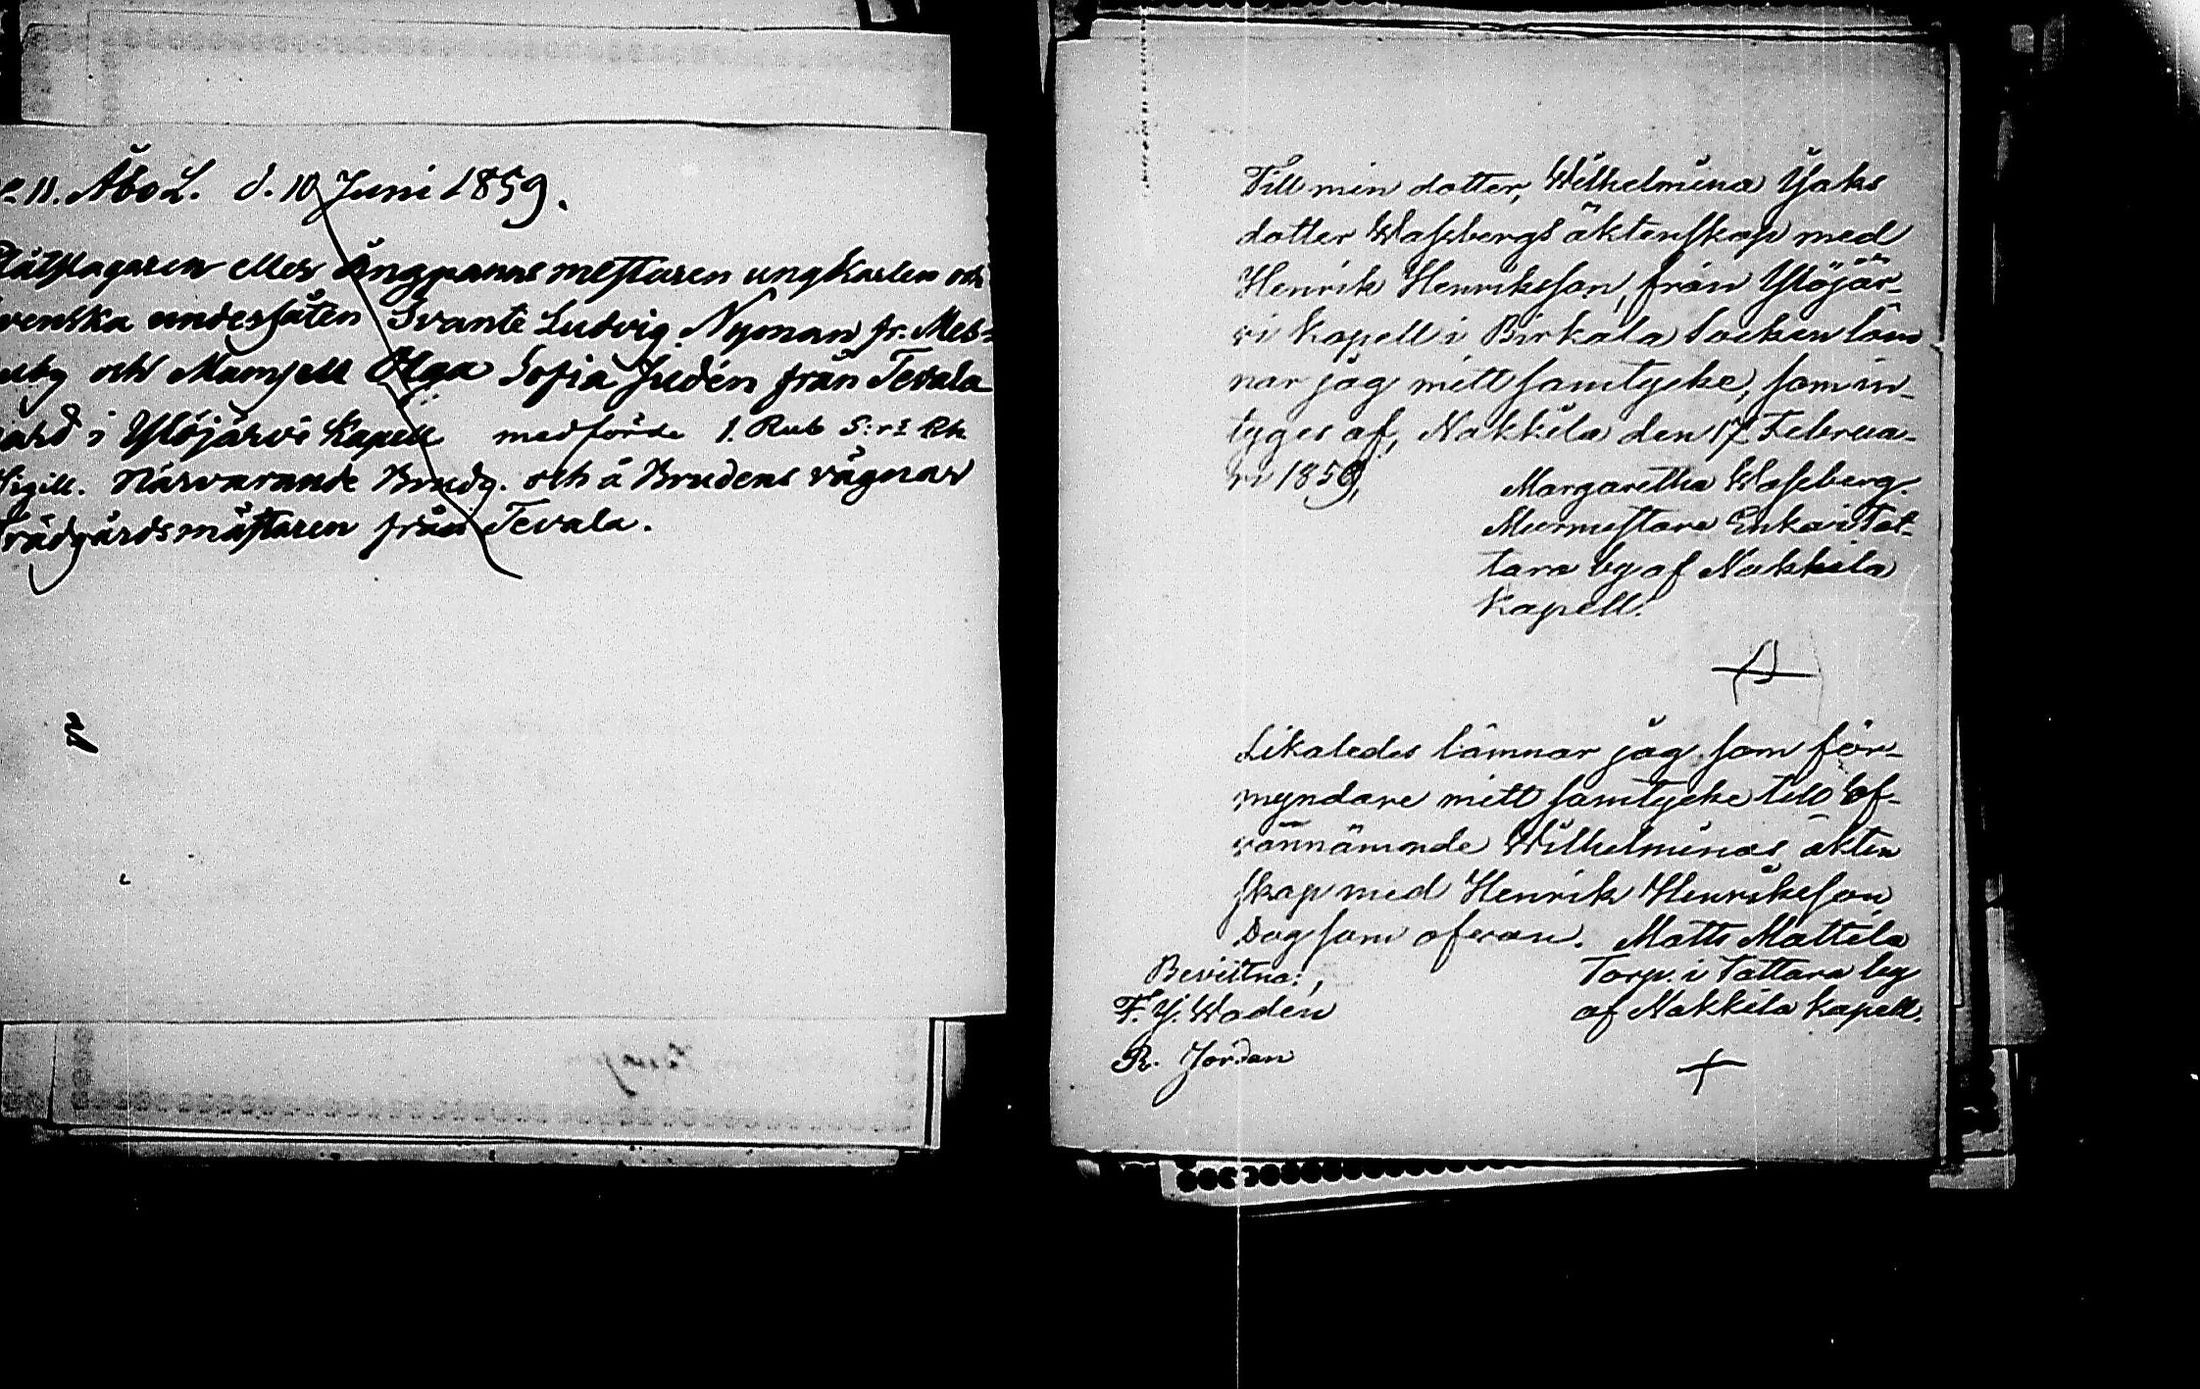 11. Åbo L. d. 10 Juni 1859.
Plåtslagaren eller Ångpanne mestaren ungkarlen och
svenska undersåten Svante Ludvig Nyman fr. Mes=
uby och Mamsell Olga Sofia Judén från Tevala
gård i Ylöjärvi Kapell medförde 1. Rub S:r
Sigill. Närvarande Brudg. och å Brudens vägnar
Trädgårdsmästaren från Tevala.
Till min dotter, Wilhelmina Jsaks
dotter Wassbergs äktenskap med
Henrik Henriksson, från Ylöjär-
vi Kapell i Birkala Socken läm
nar jag mitt samtycke, som in-
tyges af, Nakkila den 17 Februa-
ri 1859,
Margaretha Wassberg.
Murmestare Enka i Tat-
tara by af Nakkila
Kapell.
Likaledes lämnar jag som för-
myndare mitt samtycke till of-
vannämnde Wilhelminas äkten
skap med Henrik Henriksson
Dag som ofvan. Matts Mattila
Bevittna:, Torp. i Tattara by
F. J. Wadén af Nakkila kapell.
R. Jordan